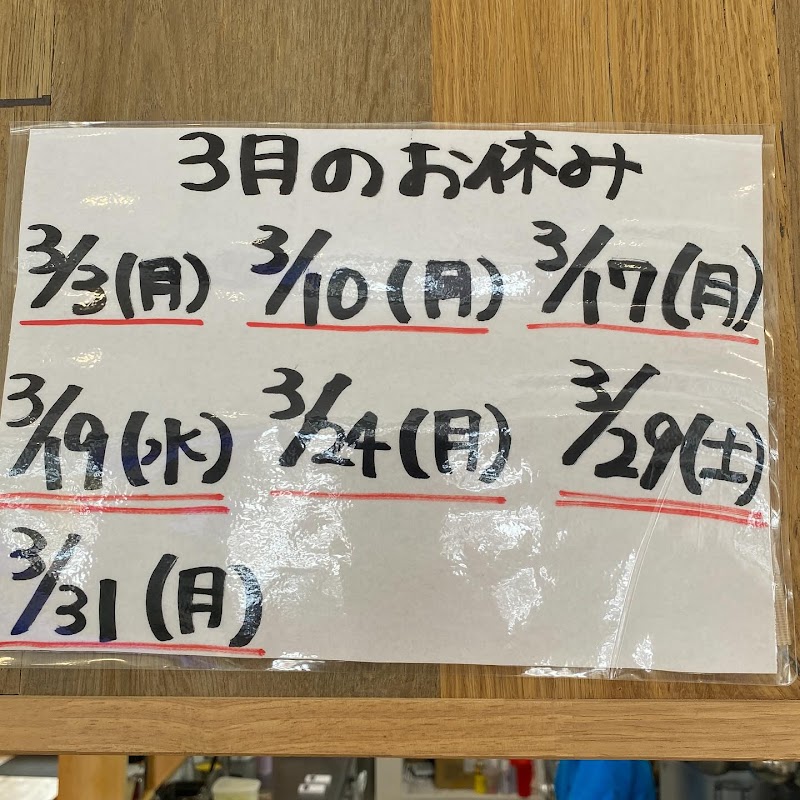 3月のお休み
3/3(月) 3/10(月) 3/17(月)
3/19(水) 3/24(月) 3/29(土)
3/31(月)